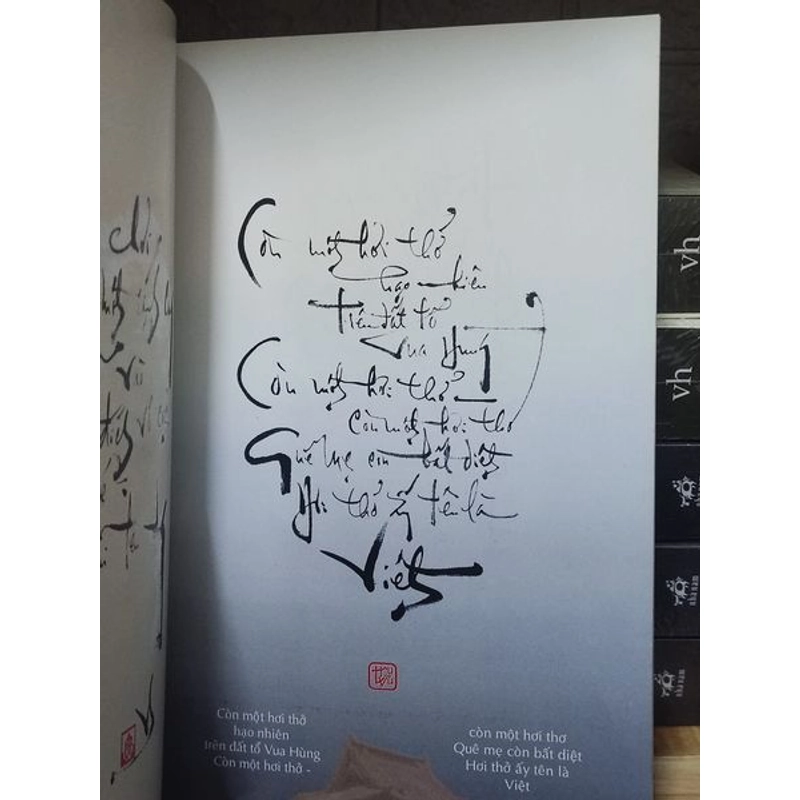 Còn một hơi thở
hạo nhiên
trên đất tổ
Vua Hùng
Còn một hơi thở -
còn một hơi thơ
Quê mẹ còn bất diệt
Hơi thở ấy tên là
Việt
Còn một hơi thở
hạo nhiên
trên đất tổ Vua Hùng
Còn một hơi thở -
còn một hơi thơ
Quê mẹ còn bất diệt
Hơi thở ấy tên là
Việt
vh
vh
nhã nam
nhã nam